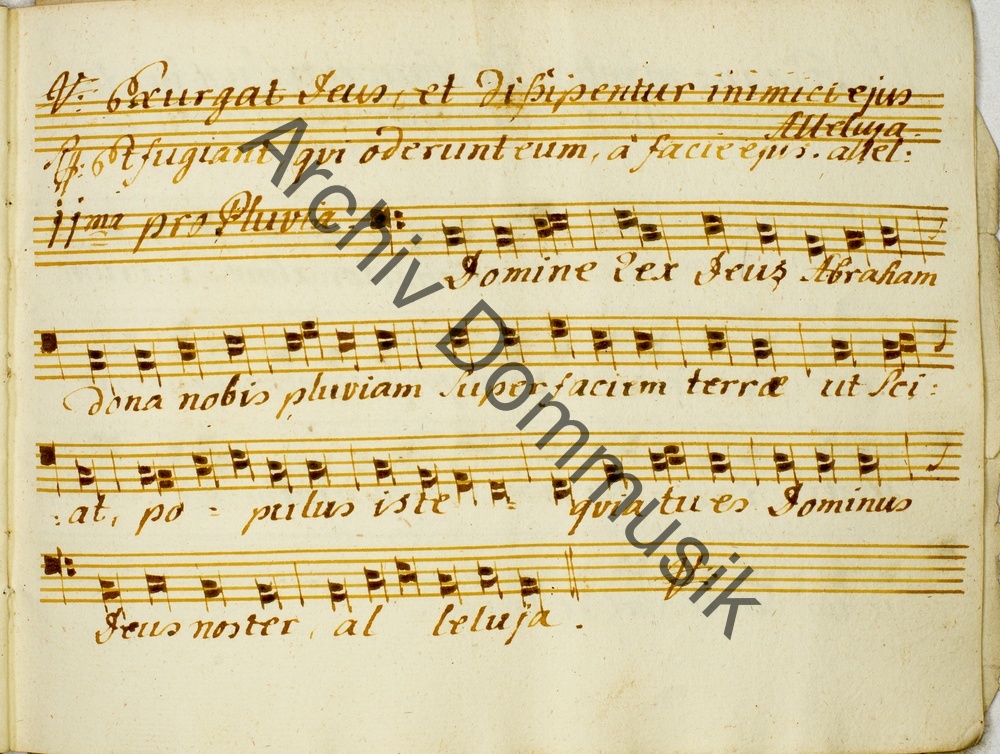 V. Exurgat Deus, et dissipentur inimici ejus
Alleluja.
R. Et fugiant qvi oderunt eum, â facie ejus. allel:
iima pro Pluvia
Domine Rex Deus Abraham
dona nobis pluviam super faciem terræ ut sci:
:at, po - pulus iste - qvia tu es Dominus
Deus noster, al leluja.
Archiv Dommusik